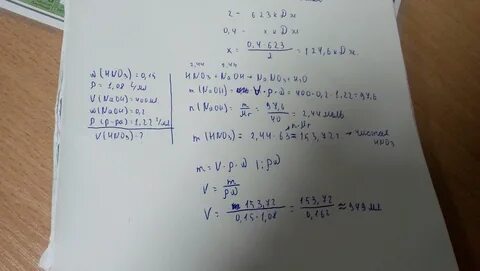 2 – 623 кДж
0,4 – x кДж
x = 0,4·623 / 2 = 124,6 кДж
ω(HNO3) = 0,15
ρ = 1,08 г/мл
V(NaOH) = 400 мл
ω(NaOH) = 0,2
ρ(р-ра) = 1,22 г/мл
V(HNO3) - ?
2,44 2,44
HNO3 + NaOH → NaNO3 + H2O
m(NaOH) = V·ρ·ω = 400·0,2·1,22 = 97,6
n(NaOH) = m / Mr = 97,6 / 40 = 2,44 моль
n·Mr
m(HNO3) = 2,44·63 = 153,72 г → чистая HNO3
m = V·ρ·ω | : ρω
V = m / ρω
V = 153,72 / 0,15·1,08 = 153,72 / 0,162 ≈ 949 мл